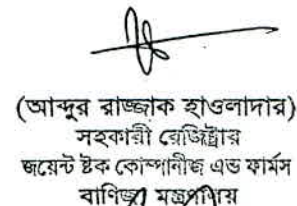 (আব্দুর রাজ্জাক হাওলাদার)
সহকারী রেজিষ্ট্রার
জয়েন্ট ষ্টক কোম্পানীজ এন্ড ফার্মস
বাণিজ্য মন্ত্রণালয়